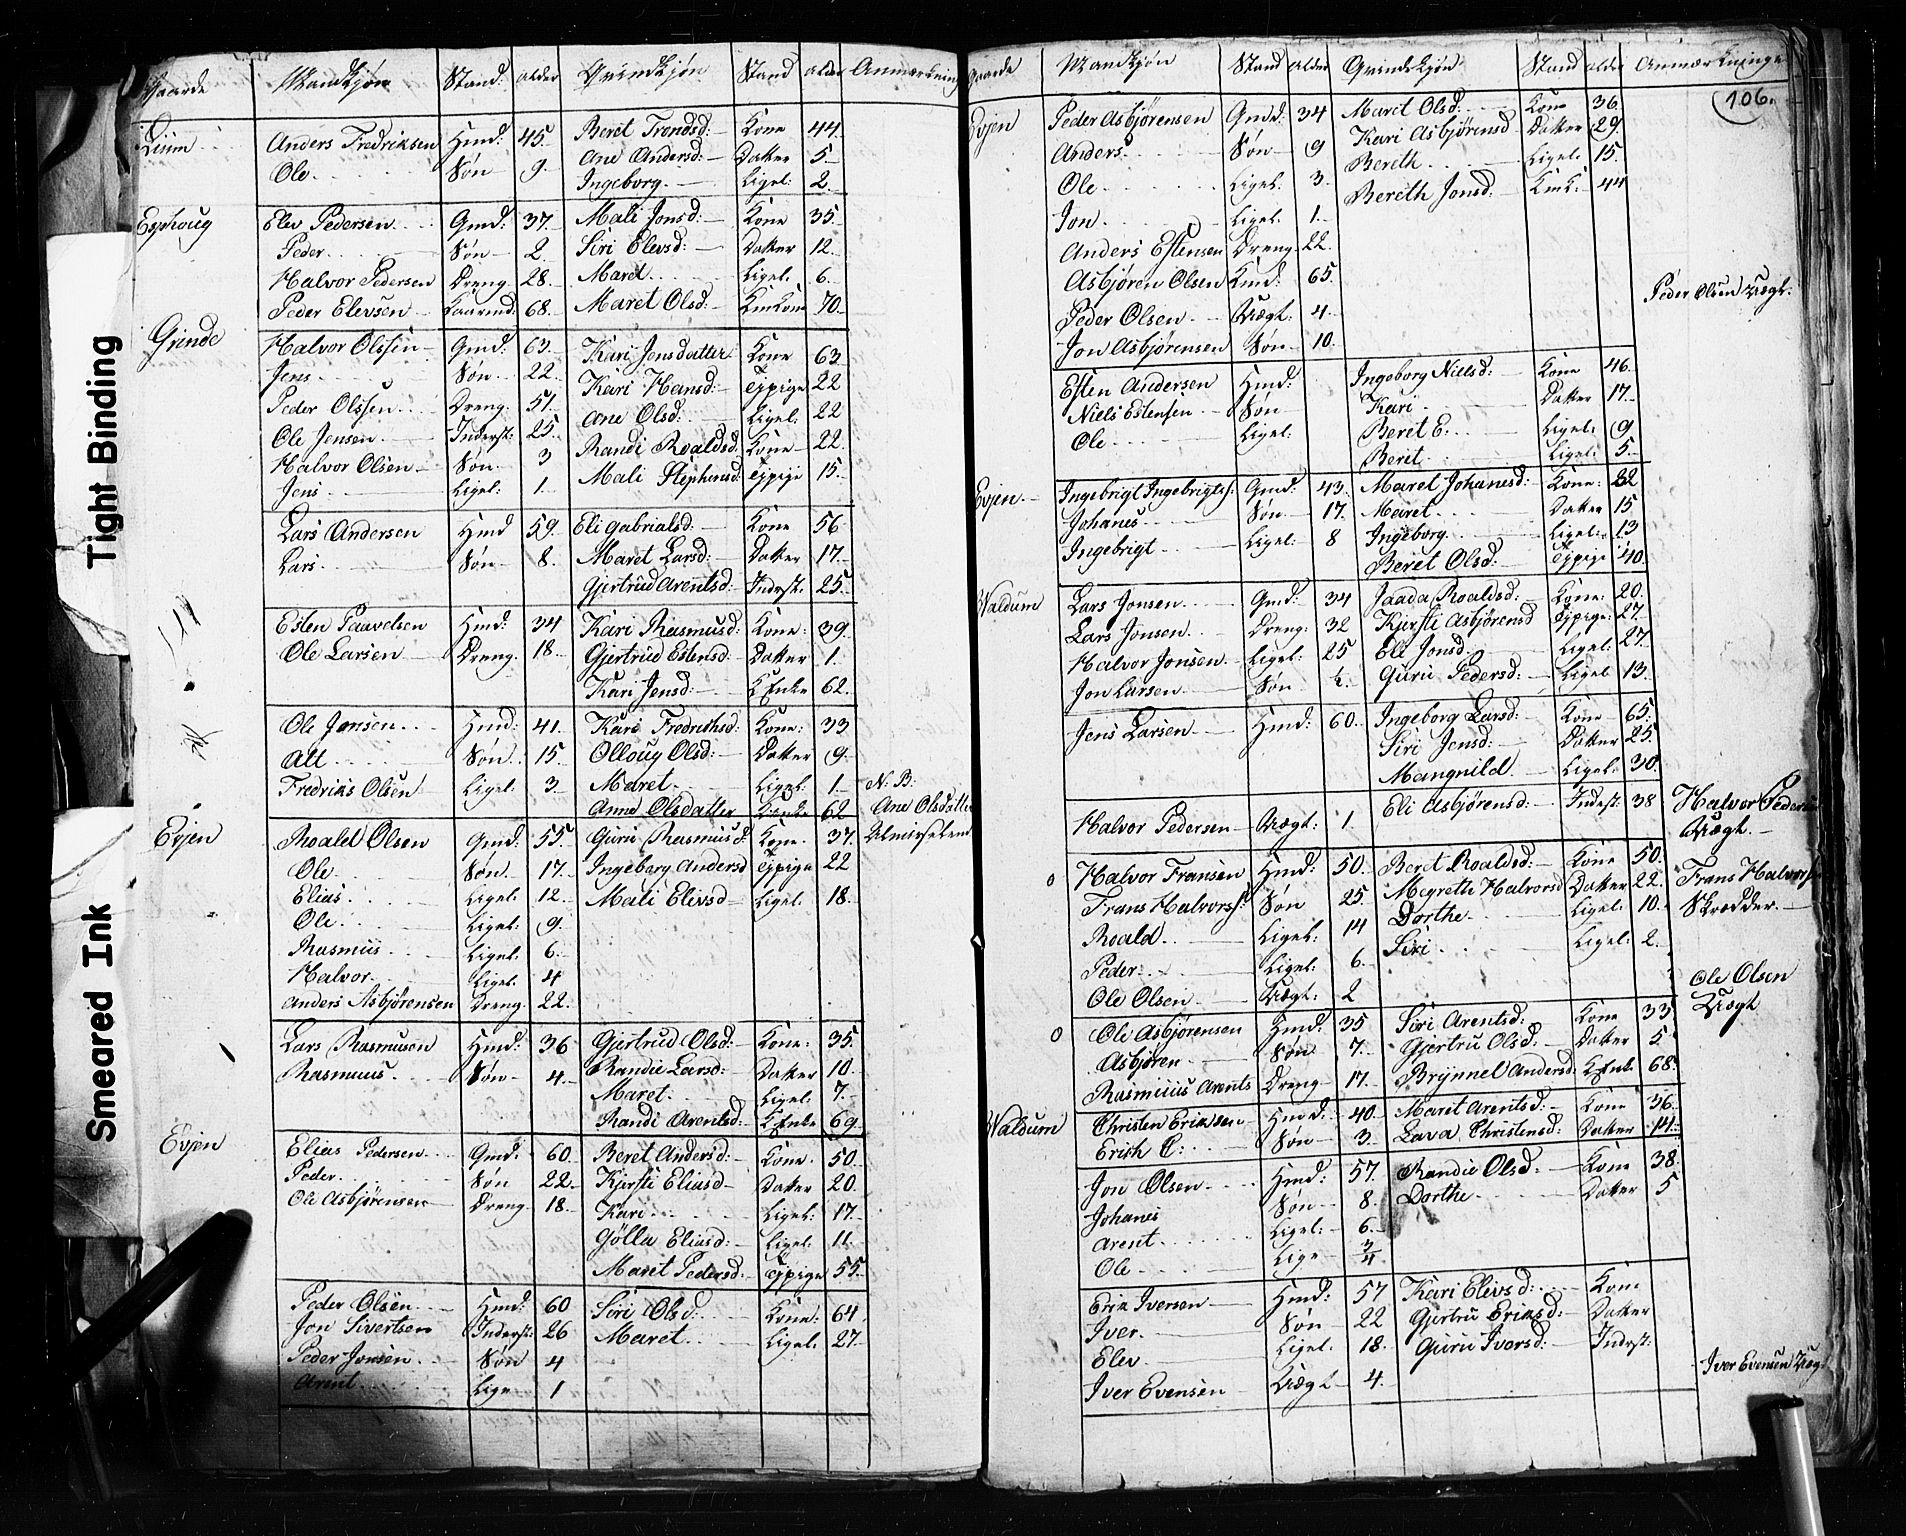 Gaarde Mandkjøn Stand: alder Qvindkjøn Stand alder Anmærkning
Anders Fredriksen Hmd: 45. Beret Trondsd: Kone 44.
Ole Søn 9. Ane Andersd: Datter 5.
Ingeborg. Ligel: 2.
Esphoug Elev Pedersen Gmd: 37. Mali Jonsd: Kone 35
Peder Søn 2. Siri Elevsd: Datter 12.
Halvor Pedersen Dreng 28. Maret Ligel: 6.
Peder Elevsen Kaarmd: 68. Maret Olsd: 70.
Grinde Halvor Olssen Gmd: 63. Kari Jensdatter Kone 63
Jens Søn 22. Kari Hansd: Tjpige 22
Peder Olssen Dreng. 51. Ane Olsd: Ligel: 22
Ole Jensen Inderst: 25. Randi Roaldsd. Kone 22.
Halvor Olsen Søn 3 Mali Stephensd: Tjpige 15.
Jens Ligel: 1.
Lars Andersen Hmd 59. Eli Gabrialsd. Kone 56
Lars Søn 8. Maret Larsd: Datter 17.
Gjertrud Arentsd: Indrst: 25.
Esten Paavelsen Hmd: 34 Kari Rasmusd: Kone: 39.
Ole Larsen Dreng. 18. Gjertrud Estensd: Datter 1.
Kari Jensd: Enke 62.
Ole Jonsen Hmd: 41. Kari Fredrichsd: Kone: 33
Alt Søn. 15 Olloug Olsd: Datter 9.
Fredriks Olsen Ligel: 3. Maret Ligel. 1. N. B.
Anne Olsdatter 62 Ane Olsdatter
Evjen Roald Olsen Gmd: 55. Guru Rasmusd: Kone. 37.
Ole Søn. 17. Ingeborg Andersd Tjpige 22
Elias Ligel: 12. Mali Elivsd Ligel. 18.
Ole Ligel: 9.
Rasmus Ligel: 6.
Halvor Ligel. 4
Anders Asbjørensen Dreng. 22.
Lars Rasmusen Hmd: 36 Gjertrud Olsd: Kone: 35.
Rasmuus Søn 4. Randie Larsd: Datter 10.
Maret Ligel. 7.
Randi Arentsd: Enke 69.
Evjen Elias Pedersen Gmd: 60. Beret Andersd: Kone. 50.
Peder Søn 22. Kjersti Eliasd Datter 20.
Ole Asbjørensen Dreng 18. Kari Ligel: 17.
Gølla Eliasd: Ligel. 11.
Maret Pedersd: Tjpige 55.
Peder Olsen Hmd: 60 Siri Olsd: Kone: 64.
Jon Sivertsen Inderst: 26 Maret Ligel: 27.
Peder Jonsen Søn 4
Arent Lige 1
Gaarde Mandkjøn Stand alder Qvindekjøn Stand alder Anmærkninge
106.
Evjen Peder Asbjørensen Gmd: 34 Maret Olsd: Kone 36.
Anders Søn 9 Kari Asbjørensd Datter 29.
Ole Ligel: 3. Bereth Ligel: 15.
Jon Ligel. 1. Bereth Jonsd: 44
Anders Estensen Dreng. 22.
Asbjøren Olsen 65.
Peder Olsen Lægt. 4. Peder Olsen Lægt.
Jon Asbjørensen Søn 10.
Esten Andersen Hmd: Ingeborg Nielsd: Kone 46.
Niels Estensen Søn Kari Datter 17.
Ole Ligel: Beret E. Ligel: 9
Beret Ligel: 5.
Evjen. Ingebrigt Ingebrigts: Gmd: 43. Maret Johanesd: Kone:
Johanes Søn 17. Maret Datter 15
Ingebrigt Ligel: 8 Ingeborg. Ligel: 13
Beret Olsd: Tjpige 40.
Waldum Lars Jonsen Gmd: 34 Jaada Roaldsd: Kone: 20.
Lars Jonsen Dreng: 32 Kjersti Asbjørensd Tjpige: 27.
Halvor Jonsen Ligel: 25 Eli Jonsd: Ligel: 27.
Jon Larsen Søn Guru Pedersd: Ligel 13.
Jens Larsen Hmd: 60. Ingeborg Larsd: Kone 65.
Siri Jensd: Datter 25.
Mangnild. Ligel: 30.
Halvor Pedersen Lægt: 1. Eli Asbjørensd: Indest: 38 Halvor Pedersen Lægt.
o Halvor Fransen Hmd: 50. Beret Roaldsd: Kone 50. Frans Halvors
Frans Halvors: Søn 25. Megrethe Halvorsd Datter 22. Skrædder.
Roald Ligel: 14 Dorthe Ligel: 10.
Peder Ligel: 6. Siri Ligel: 2.
Ole Olsen Lægt: 2 Ole Olsen Lægt
o Ole Asbjørensen Hmd: 35 Siri Arentsd: Kone 33
Asbjøren Søn 7. Gjertru Olsd: Datter 5
Rasmuus Arents Dreng 17. Brynnel Andersd: Enke 68.
Waldum Christen Eriksen Hmd: 40. Maret Arentsd: Kone 36.
Erich C: Søn 3. Lava Christensd: Datter 14.
Jon Olsen Hmd: 57. Randie Olsd: Kone 38.
Johanes Søn 8. Dorthe Datter 5
Arent Ligel: 6.
Ole Lige 3/4
Erik Iversen Hmd: 57 Kari Elevsd: Kone
Iver. Søn 22 Gjertru Eriksd: Datter
Elev Ligel. 18. Guru Iversd: Indrst:
Iver Evensen Lægt 4. Iver Evensen Læg